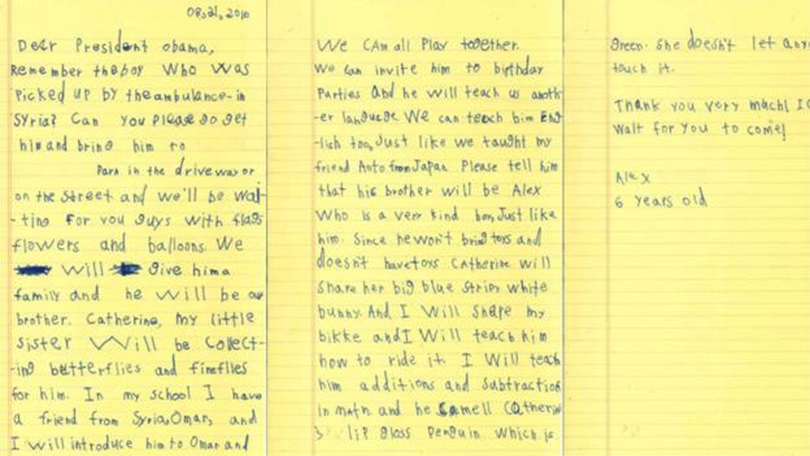 08,21,2010
Dear President obama,
Remember the boy who was
Picked up by the ambulance-in
Syria? Can you please go get
him and bring him to
Park in the driveway or
on the street and we'll be wai-
-ting for you guys with flags
flowers and balloons. We
will give him a
family and he will be our
brother. Catherine, my little
sister will be collect-
-ing butterflies and fireflies
for him. In my school I have
a friend from Syria, Omar, and
I will introduce him to Omar and
We can all Play together.
We can invite him to birthday
Parties and he will teach us anoth-
-er language. We can teach him Eng
-lish too, Just like we taught my
friend Aoto from Japan. Please tell him
that his brother will be Alex
Who is a very kind boy, Just like
him. Since he won't bring toys and
doesn't have toys Catherine will
share her big blue stripy white
bunny. And I will share my
bikke and I will teach him
how to ride it. I will teach
him additions and subtractions
in math and he smell Catherine
's lip gloss penguin which is
green. She doesn't let any
touch it.
Thank you very mach! I
Wait for you to come!
Alex
6 years old